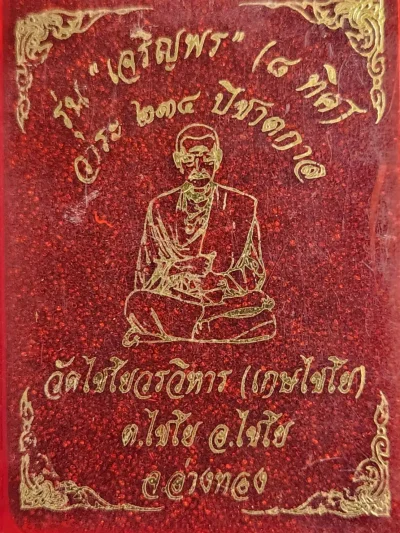 รุ่น "เจริญพร" (๘ ทิศ)
วาระ ๒๓๔ ปีชาตกาล
วัดไชโยวรวิหาร (เกษไชโย)
ต.ไชโย อ.ไชโย
จ.อ่างทอง